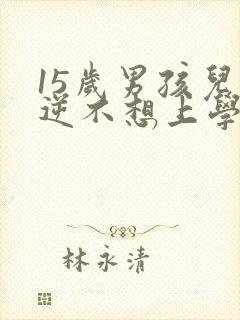 15歲男孩兒
逆不想上學
林永清